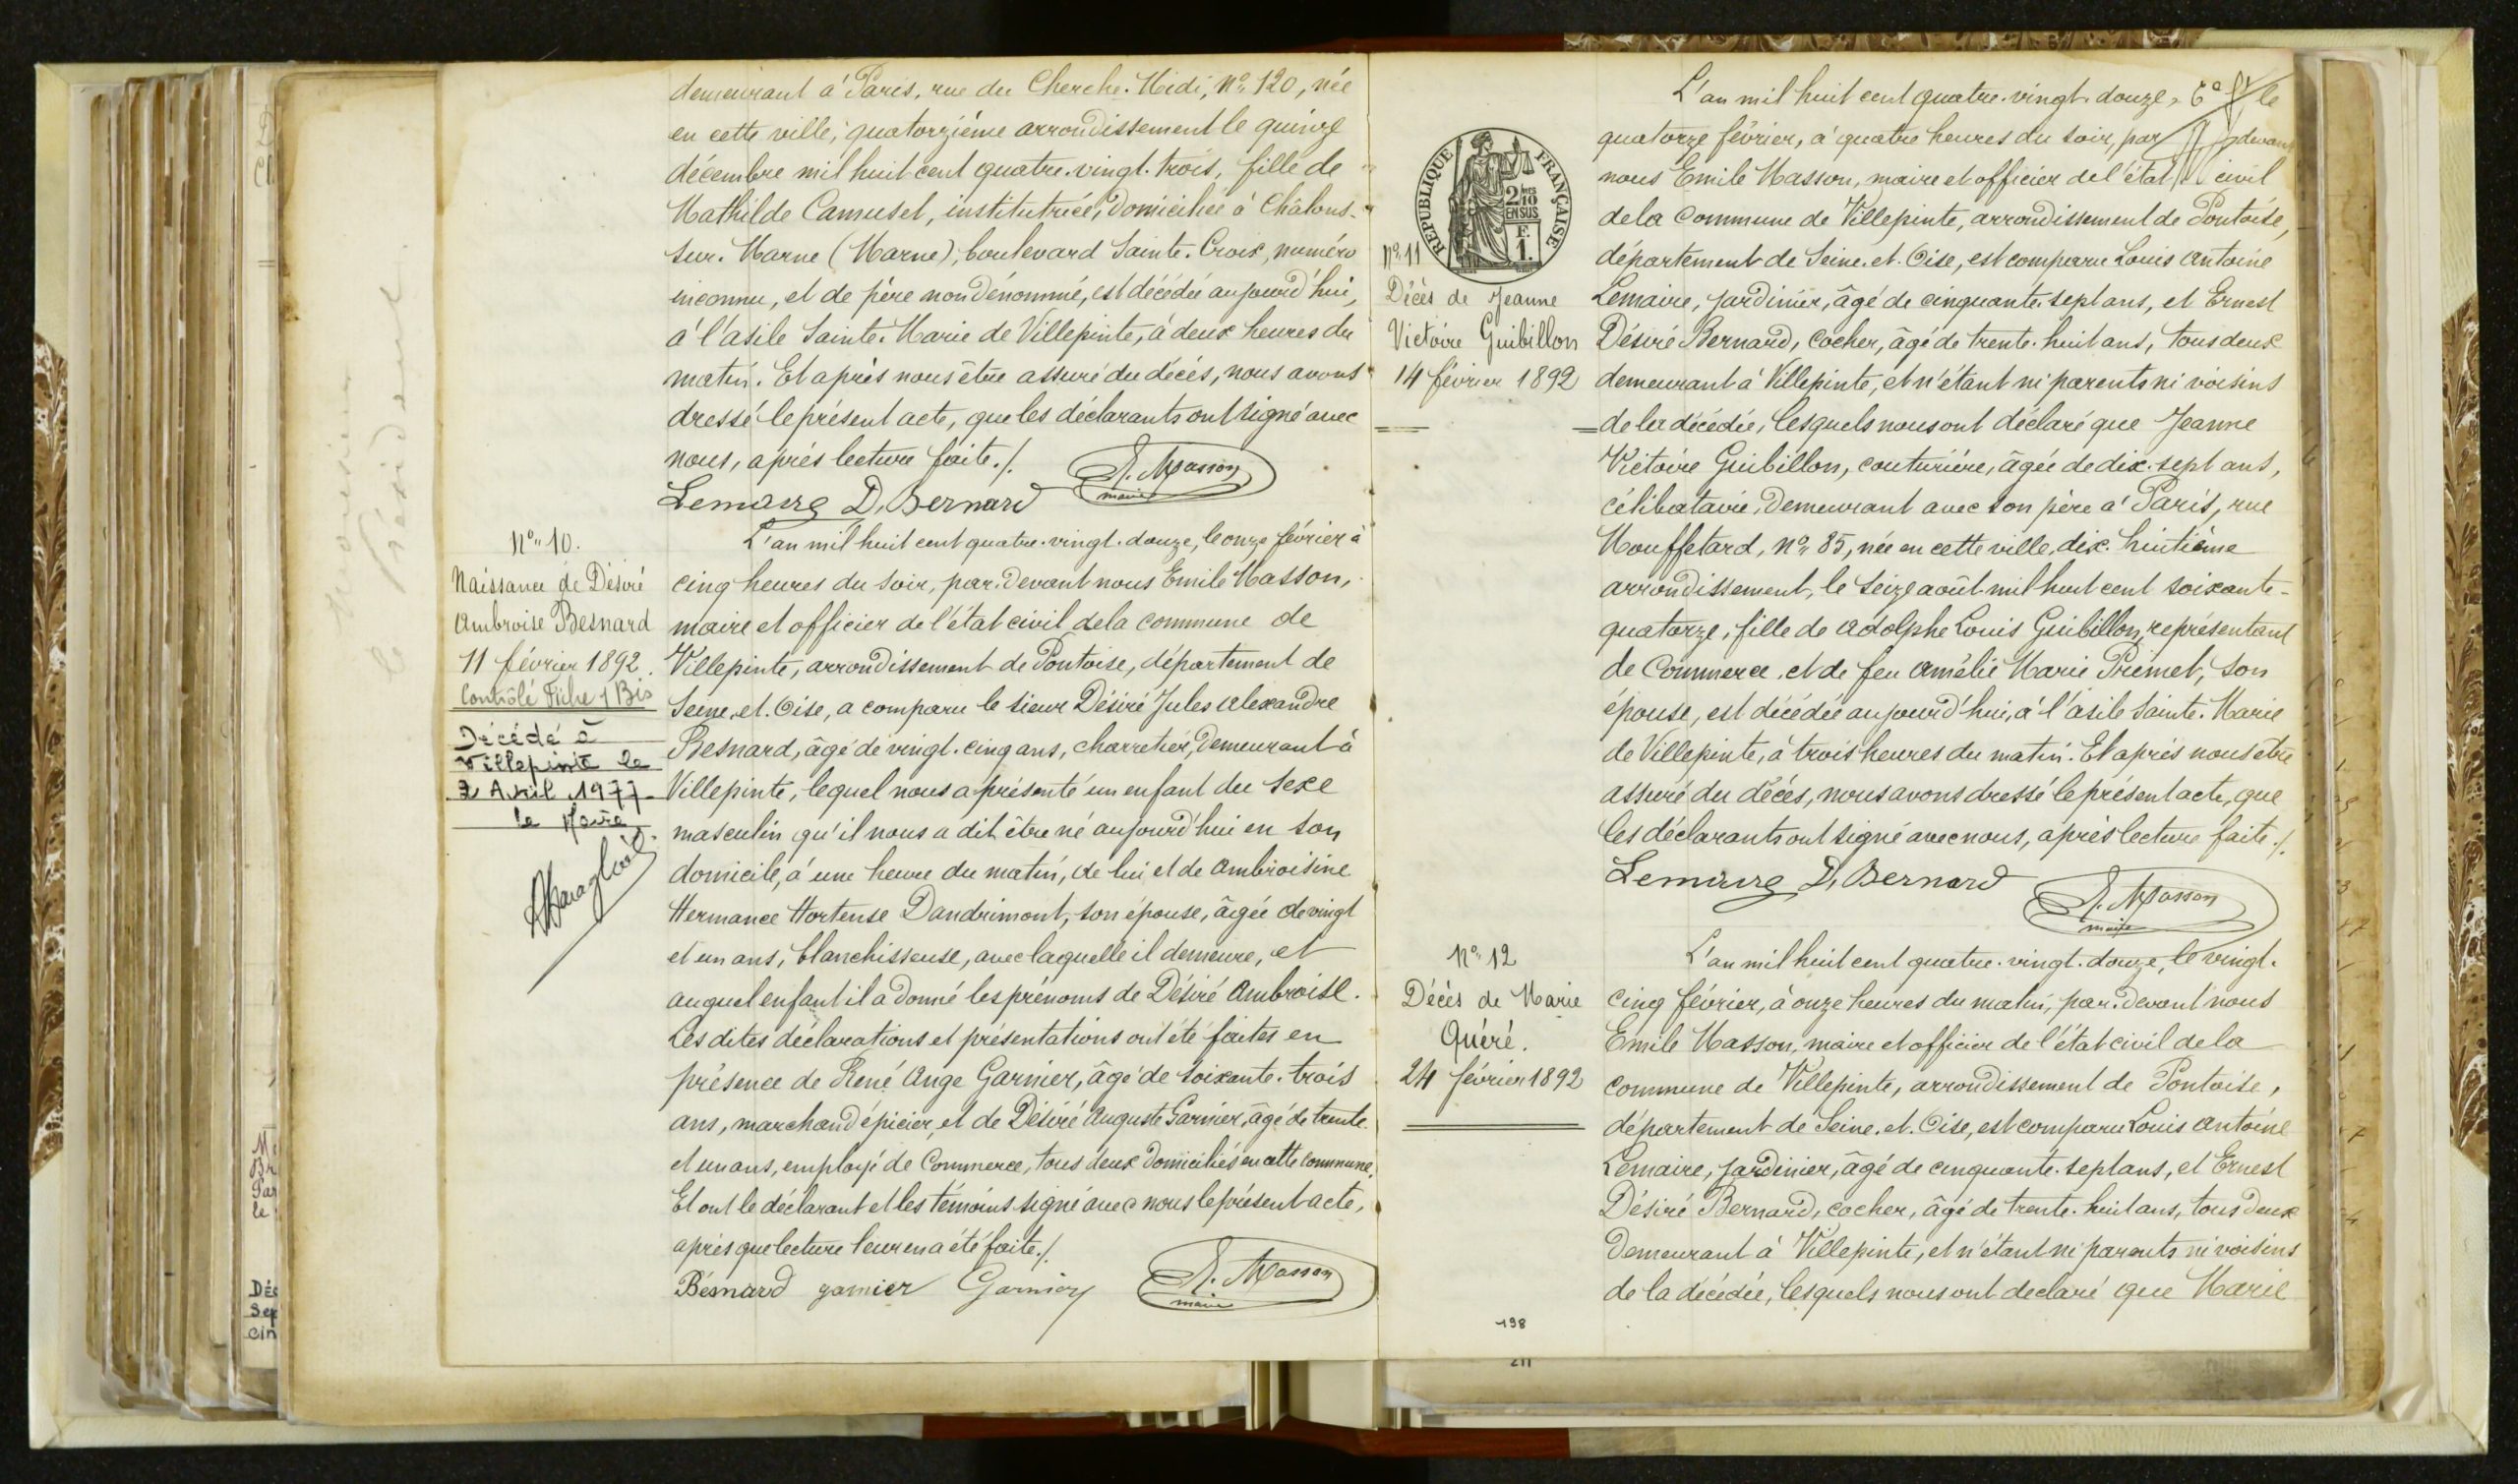 demeurant à Paris, rue du Cherche-Midi, No 120, née
en cette ville, quatorzième arrondissement le quinze
décembre mil huit cent quatre-vingt-trois, fille de
Mathilde Camusel, institutrice, domiciliée à Châlons-
sur-Marne (Marne), boulevard Sainte-Croix, numéro
inconnu, et de père non dénommé, est décédée aujourd'hui,
à l'asile Sainte-Marie de Villepinte, à deux heures du
matin. Et après nous être assuré du décès, nous avons
dressé le présent acte, que les déclarants ont signé avec
nous, après lecture faite./.
E. Masson
maire
Lemaire D. Bernard
No 10.
Naissance de Désiré
Ambroise Besnard
11 février 1892.
Contrôlé Fiche 1 Bis
Décédé à
Villepinte le
2 Avril 1977
le Maire
L'an mil huit cent quatre-vingt-douze, le onze février à
cinq heures du soir, par-devant nous Emile Masson,
maire et officier de l'état civil de la commune de
Villepinte, arrondissement de Pontoise, département de
Seine-et-Oise, a comparu le sieur Désiré Jules Alexandre
Besnard, âgé de vingt-cinq ans, charretier, demeurant à
Villepinte, lequel nous a présenté un enfant du sexe
masculin qu'il nous a dit être né aujourd'hui en son
domicile, à une heure du matin, de lui et de Ambroisine
Hermance Hortense Dandrimont, son épouse, âgée de vingt
et un ans, blanchisseuse, avec laquelle il demeure, et
auquel enfant il a donné les prénoms de Désiré Ambroise.
Les dites déclarations et présentations ont été faites en
présence de René Ange Garnier, âgé de soixante-trois
ans, marchand épicier, et de Désiré Auguste Garnier, âgé de trente
et un ans, employé de Commerce, tous deux domiciliés en cette commune.
Et ont le déclarant et les témoins signé avec nous le présent acte,
après que lecture leur en a été faite./.
Bésnard garnier Garnier
E. Masson
maire
RÉPUBLIQUE FRANÇAISE
2/10
EN SUS
F.
1.
No 11
Décès de Jeanne
Victoire Guibillon
14 février 1892
L'an mil huit cent quatre-vingt-douze, le
quatorze février, à quatre heures du soir, par devant
nous Emile Masson, maire et officier de l'état civil
de la Commune de Villepinte, arrondissement de Pontoise,
département de Seine-et-Oise, est comparu Louis Antoine
Lemaire, jardinier, âgé de cinquante-sept ans, et Ernest
Désiré Bernard, cocher, âgé de trente-huit ans, tous deux
demeurant à Villepinte, et n'étant ni parents ni voisins
de la décédée, lesquels nous ont déclaré que Jeanne
Victoire Guibillon, couturière, âgée de dix-sept ans,
célibataire, demeurant avec son père à Paris, rue
Mouffetard, No 85, née en cette ville, dix-huitième
arrondissement, le seize août mil huit cent soixante-
quatorze, fille de Adolphe Louis Guibillon, représentant
de Commerce, et de feu Amélie Marie Prémet, son
épouse, est décédée aujourd'hui, à l'asile Sainte-Marie
de Villepinte, à trois heures du matin. Et après nous être
assuré du décès, nous avons dressé le présent acte, que
les déclarants ont signé avec nous, après lecture faite./.
Lemaire D. Bernard
E. Masson
maire
No 12
Décès de Marie
Quéré.
24 février 1892
L'an mil huit cent quatre-vingt-douze, le vingt-
cinq février, à onze heures du matin, par-devant nous
Emile Masson, maire et officier de l'état civil de la
commune de Villepinte, arrondissement de Pontoise,
département de Seine-et-Oise, est comparu Louis Antoine
Lemaire, jardinier, âgé de cinquante-sept ans, et Ernest
Désiré Bernard, cocher, âgé de trente-huit ans, tous deux
demeurant à Villepinte, et n'étant ni parents ni voisins
de la décédée, lesquels nous ont declaré que Marie
198
211